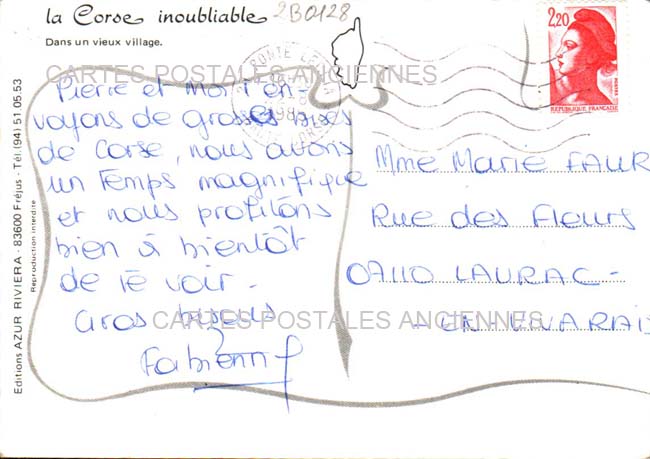 la Corse inoubliable
2B0128
Dans un vieux village.
2,20
POSTES
REPUBLIQUE FRANÇAISE
CARTES POSTALES ANCIENNES
Pierre et Moi t'en-
voyons de grosses bises
de Corse, nous avons
un Temps magnifique
et nous profitons
bien à bientôt
de te voir -
Gros bisous
Fabienne
Mme Marie FAUR
Rue des Fleurs
07110 LAURAC-
-EN VIVARAIS
CARTES POSTALES ANCIENNES
Editions AZUR RIVIERA - 83600 Fréjus - Tél. (94) 51 05 53
Reproduction interdite